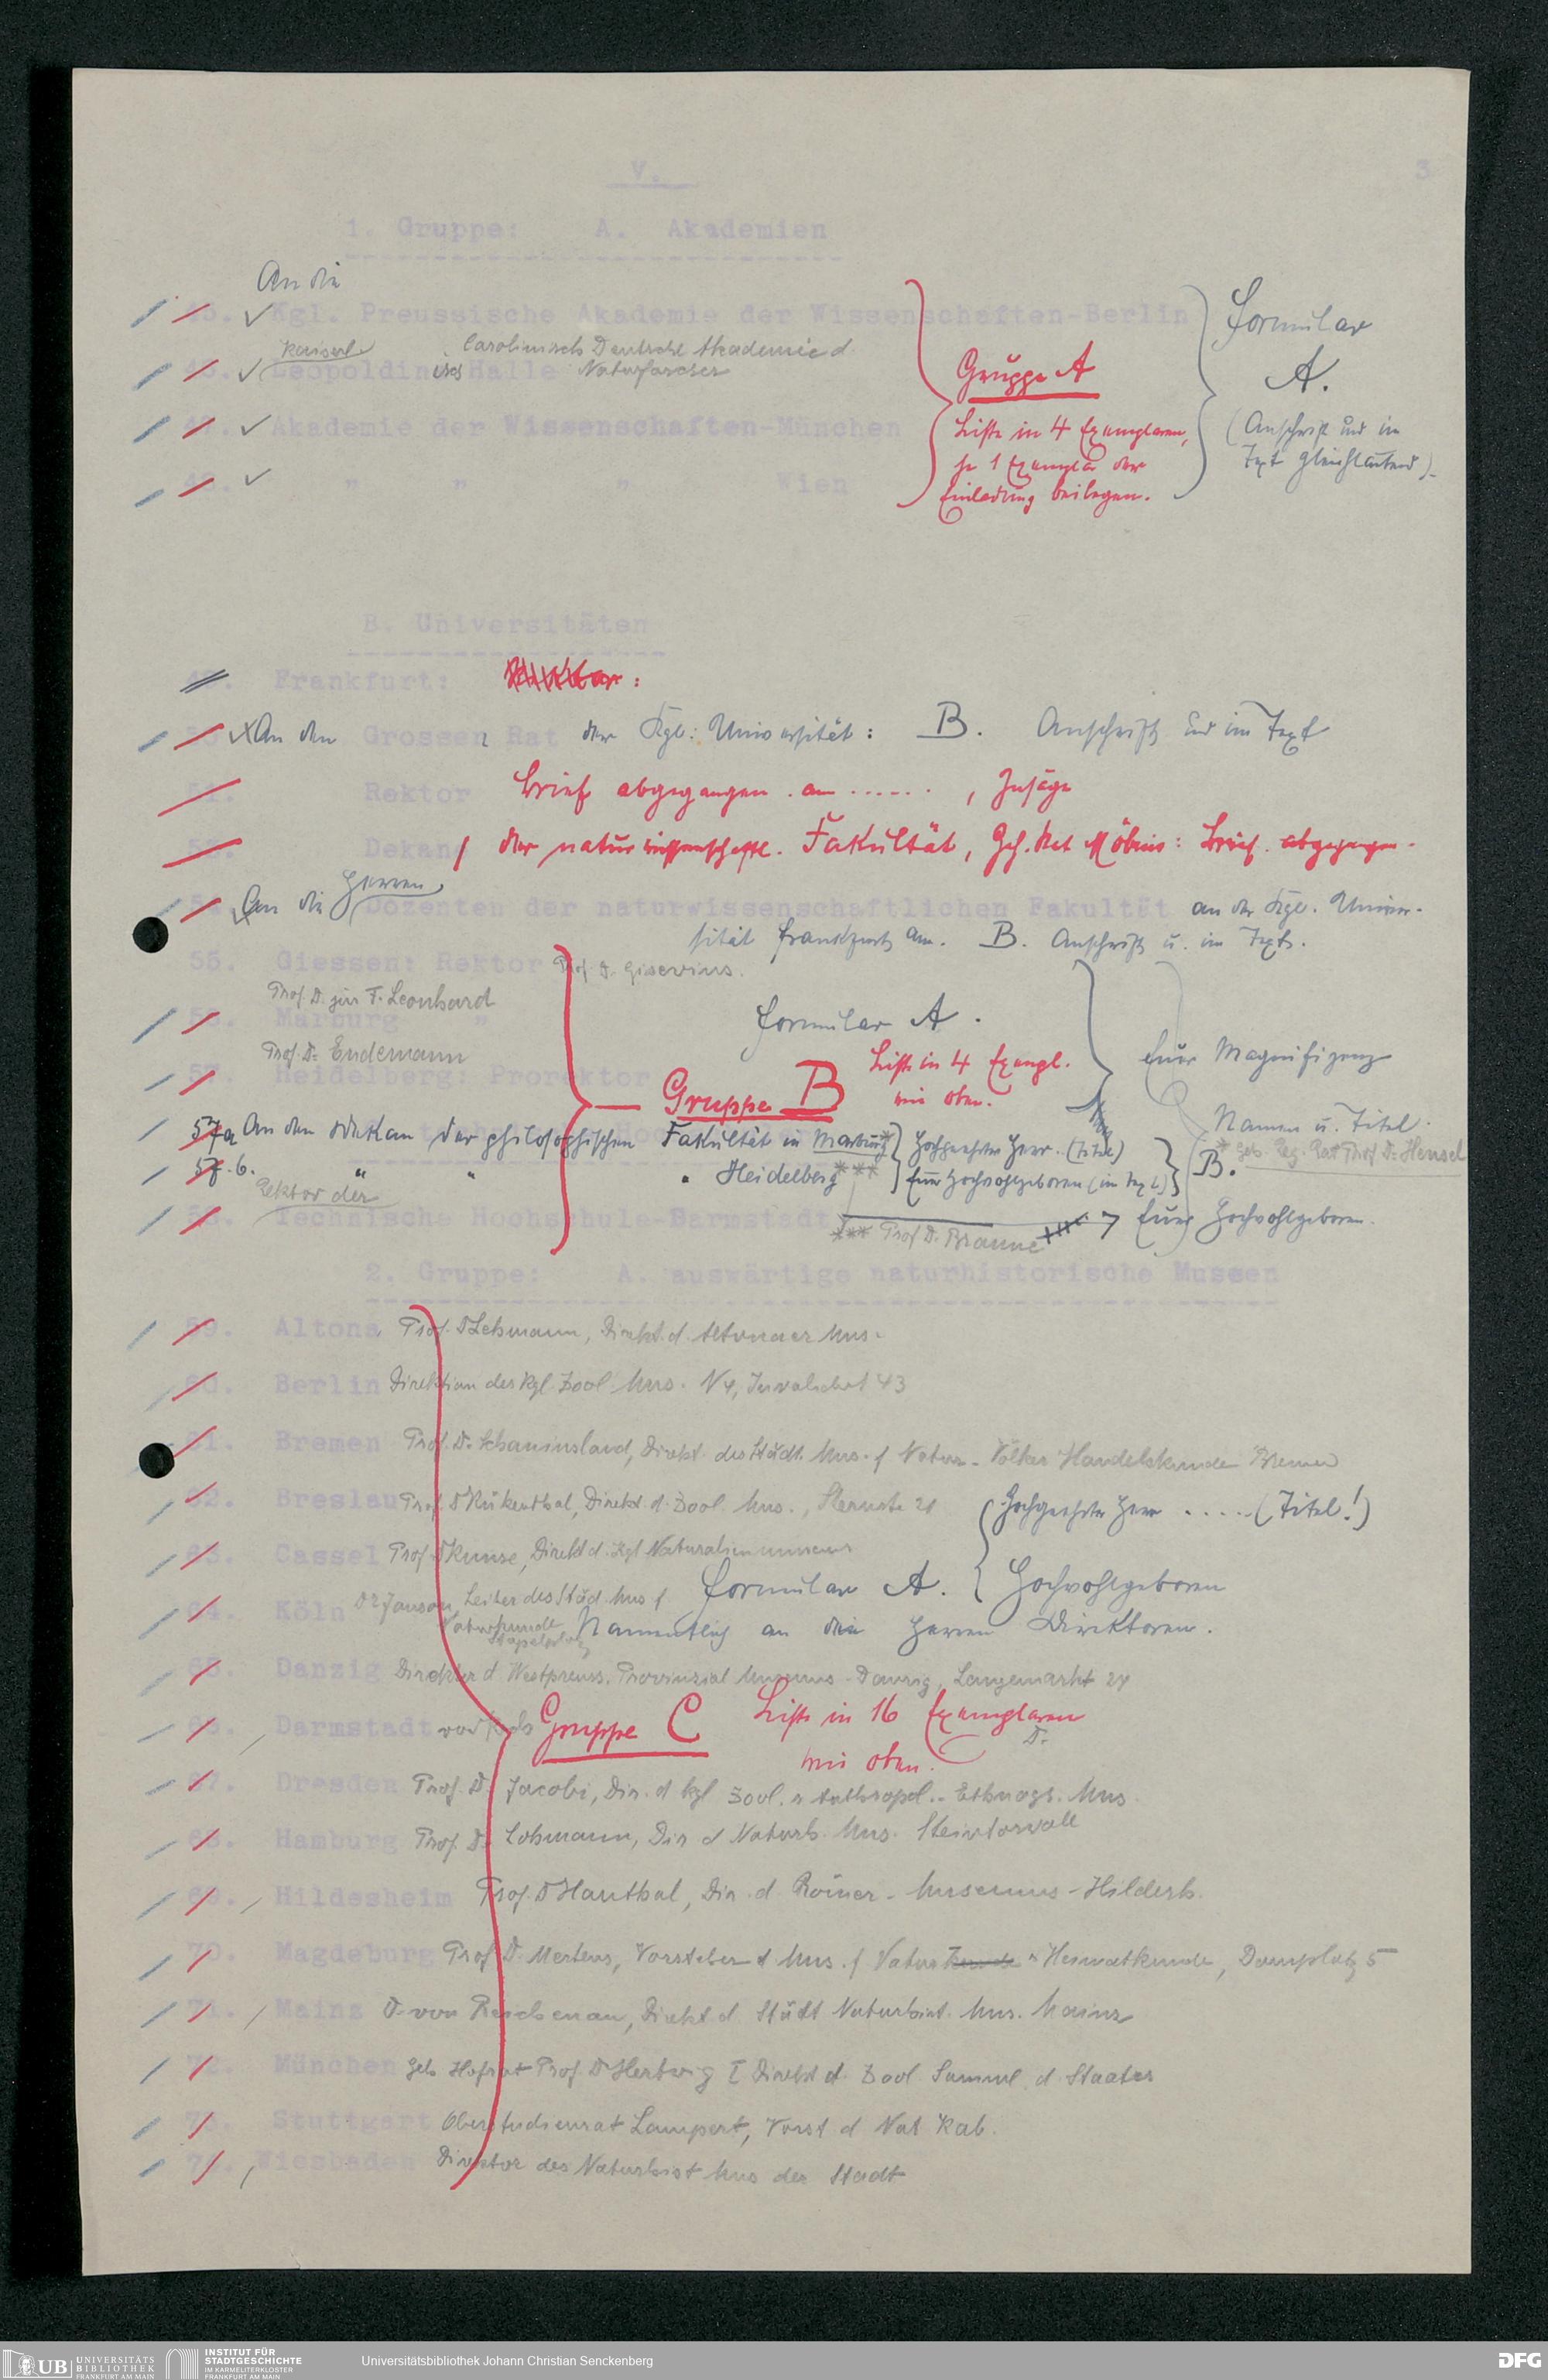 V.
3
1. Gruppe: A. Akademien
An die
45. Kgl. Preussische Akademie der Wissenschaften-Berlin
Kaiserl. Carolinisch Deutsche Akademie d.
46. Leopoldinisch Halle Naturforscher
47. Akademie der Wissenschaften-München
48. " " " Wien
Gruppe A
Liste in 4 Exemplaren,
je 1 Exemplar der
Einladung beilegen.
Formular
A.
(Anschrift und im
Text gleichlautend).
B. Universitäten
49. Frankfurt: Rektor:
50. An den Grossen Rat der Kgl: Universität: B. Anschrift und im Text
51. Rektor Brief abgegangen am ......, Zusage
52. Dekan der naturwissenschaftl. Fakultät, Geh. Rat Möbius: Brief abgegangen.
54. An die Herren Dozenten der naturwissenschaftlichen Fakultät an der Kgl. Univer-
sität Frankfurt am. B. Anschrift u. im Text.
55. Giessen: Rektor Prof. D. Gisevius.
Prof. D. jur F. Leonhard
56. Marburg "
Formular A.
Prof. Dr. Endemann
57. Heidelberg: Prorektor
Gruppe B Liste in 4 Exempl.
wie oben.
Euer Magnifizenz
57a An den Dekan der philosophischen Fakultät in Marburg* Hochgeehrter Herr. (Titel)
57.b. " " " Heidelberg *** Euer Hochwohlgeboren (im Text)
Namen u. Titel.
B. * Geh. Reg. Rat Prof. Dr. Hensel
Rektor der
58. Technische Hochschule-Darmstadt Euer Hochwohlgeboren.
*** Prof D. Braune ***
2. Gruppe: A. auswärtige naturhistorische Museen
59. Altona Prof. D Lehmann, Direkt. d. Altonaer Mus.
60. Berlin Direktion des Kgl Zool. Mus. N 4, Invalidenst 43
61. Bremen Prof. D. Schauinsland, Direkt. des Städt. Mus. f Natur- Völker Handelskunde Bremen
62. Breslau Prof. D Kükenthal, Direkt. d. Zool. Mus., Sternstr 21
Hochgeehrter Herr ..... (Titel!)
63. Cassel Prof. D Kunze, Direkt d. Kgl Naturalienmuseum
64. Köln Dr Janson, Leiter des Städ. Mus f
Naturkunde
Stapelhaus
Formular A. Hochwohlgeboren
Namentlich an die Herren Direktoren.
65. Danzig Direktor d. Westpreuss. Provinzial Museums-Danzig, Langemarkt 24
66. Darmstadt
Gruppe C Liste in 16 Exemplaren
wie oben.
D.
67. Dresden Prof. D. Jacobi, Dir. d kgl Zool. u Anthropol.-Ethnogr. Mus.
68. Hamburg Prof. D. Lohmann, Dir d Naturh. Mus. Steintorwall
69. Hildesheim Prof. D Hauthal, Dir. d Römer-Museums-Hildesh.
70. Magdeburg Prof. D. Mertens, Vorsteher d Mus. f Naturkunde u Heimatkunde, Domplatz 5
71. Mainz D. von Reichenau, Direkt d. Städt Naturhist. Mus. Mainz
72. München Geh Hofrat Prof. D Hertwig I Direkt d. Zool Samml. d. Staates
73. Stuttgart Oberstudienrat Lampert, Vorst d Nat Kab.
74. Wiesbaden Direktor des Naturhist Mus der Stadt
UB UNIVERSITÄTS
BIBLIOTHEK
FRANKFURT AM MAIN
INSTITUT FÜR
STADTGESCHICHTE
IM KARMELITERKLOSTER
FRANKFURT AM MAIN
Universitätsbibliothek Johann Christian Senckenberg
DFG